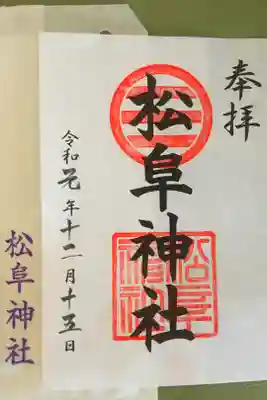 奉拝
松阜神社
令和元年十二月十五日
松阜神社
松阜神社